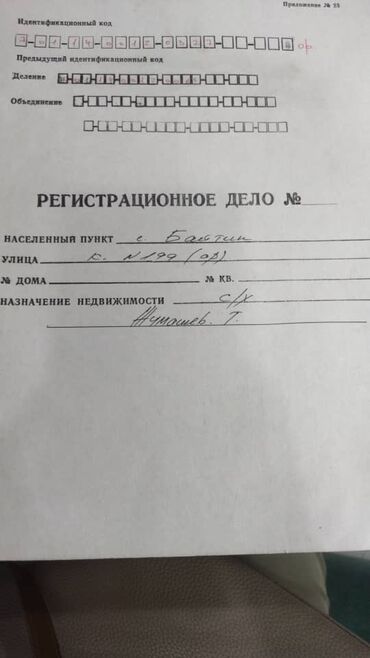 Приложение № 23
Идентификационный код
ор.
Предыдущий идентификационный код
Деление
Объединение
РЕГИСТРАЦИОННОЕ ДЕЛО №
НАСЕЛЕННЫЙ ПУНКТ с. Байтик
УЛИЦА к. N 199 (ор)
№ ДОМА № КВ.
НАЗНАЧЕНИЕ НЕДВИЖИМОСТИ с/х
Жумашев. Т.